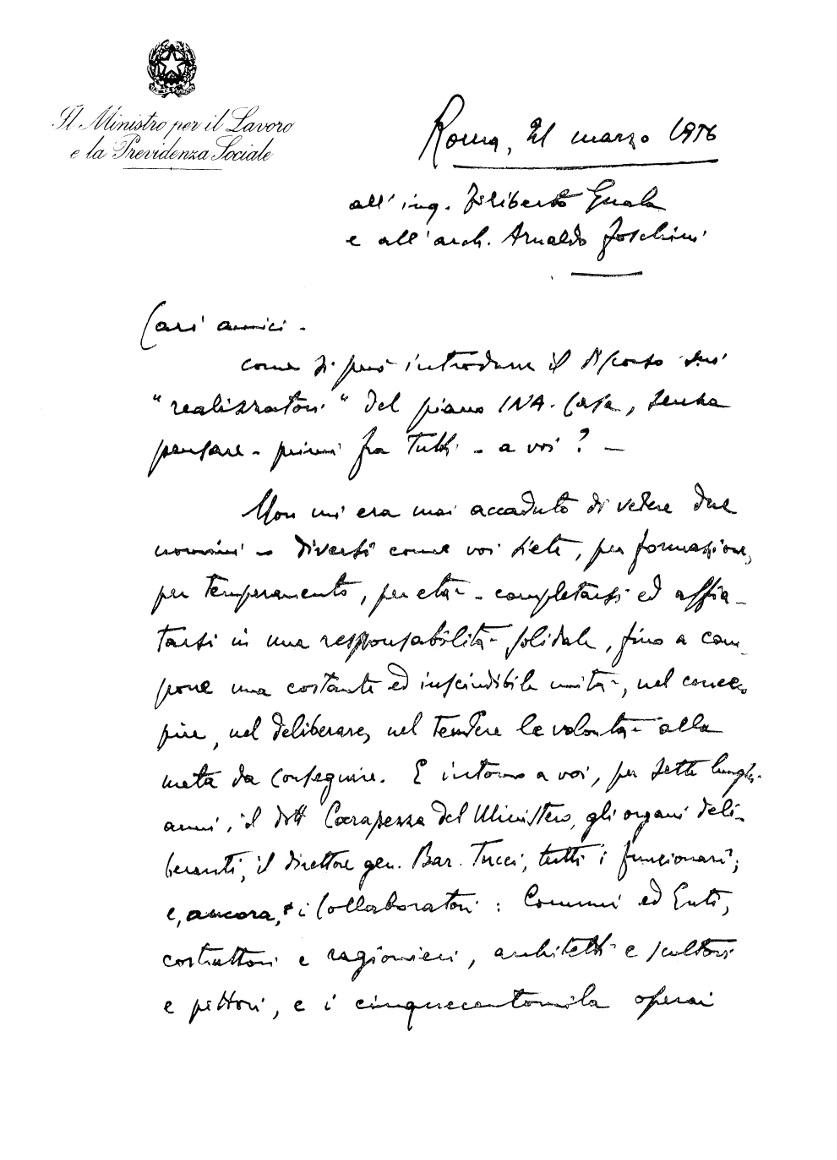 Il Ministro per il Lavoro
e la Previdenza Sociale
Roma, 21 marzo 1956
all'ing. Filiberto Guala
e all'arch. Arnaldo Foschini
Cari amici -
come si può introdurre il discorso sui
"realizzatori" del piano INA-Casa, senza
pensare - primi fra tutti - a voi? -
Non mi era mai accaduto di vedere due
uomini - diversi come voi siete, per formazione,
per temperamento, per età - completarsi ed affia-
tarsi in una responsabilità solidale, fino a com-
porre una costante ed inscindibile unità, nel conce-
pire, nel deliberare, nel tendere le volontà alla
meta da conseguire. E intorno a voi, per sette lunghi
anni, il dott. Carapezza del Ministero, gli organi deli-
beranti, il direttore gen. Bar. Tucci, tutti i funzionari;
e, ancora, i collaboratori: Comuni ed Enti,
costruttori e ragionieri, architetti e scultori
e pittori, e i cinquecentomila operai